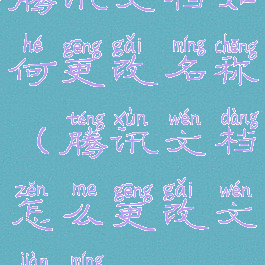 腾讯文档如
hé gēng gǎi míng chēng
何更改名称
téng xùn wén dàng
（腾讯文档
zěn me gēng gǎi wén
怎么更改文
jiàn míng